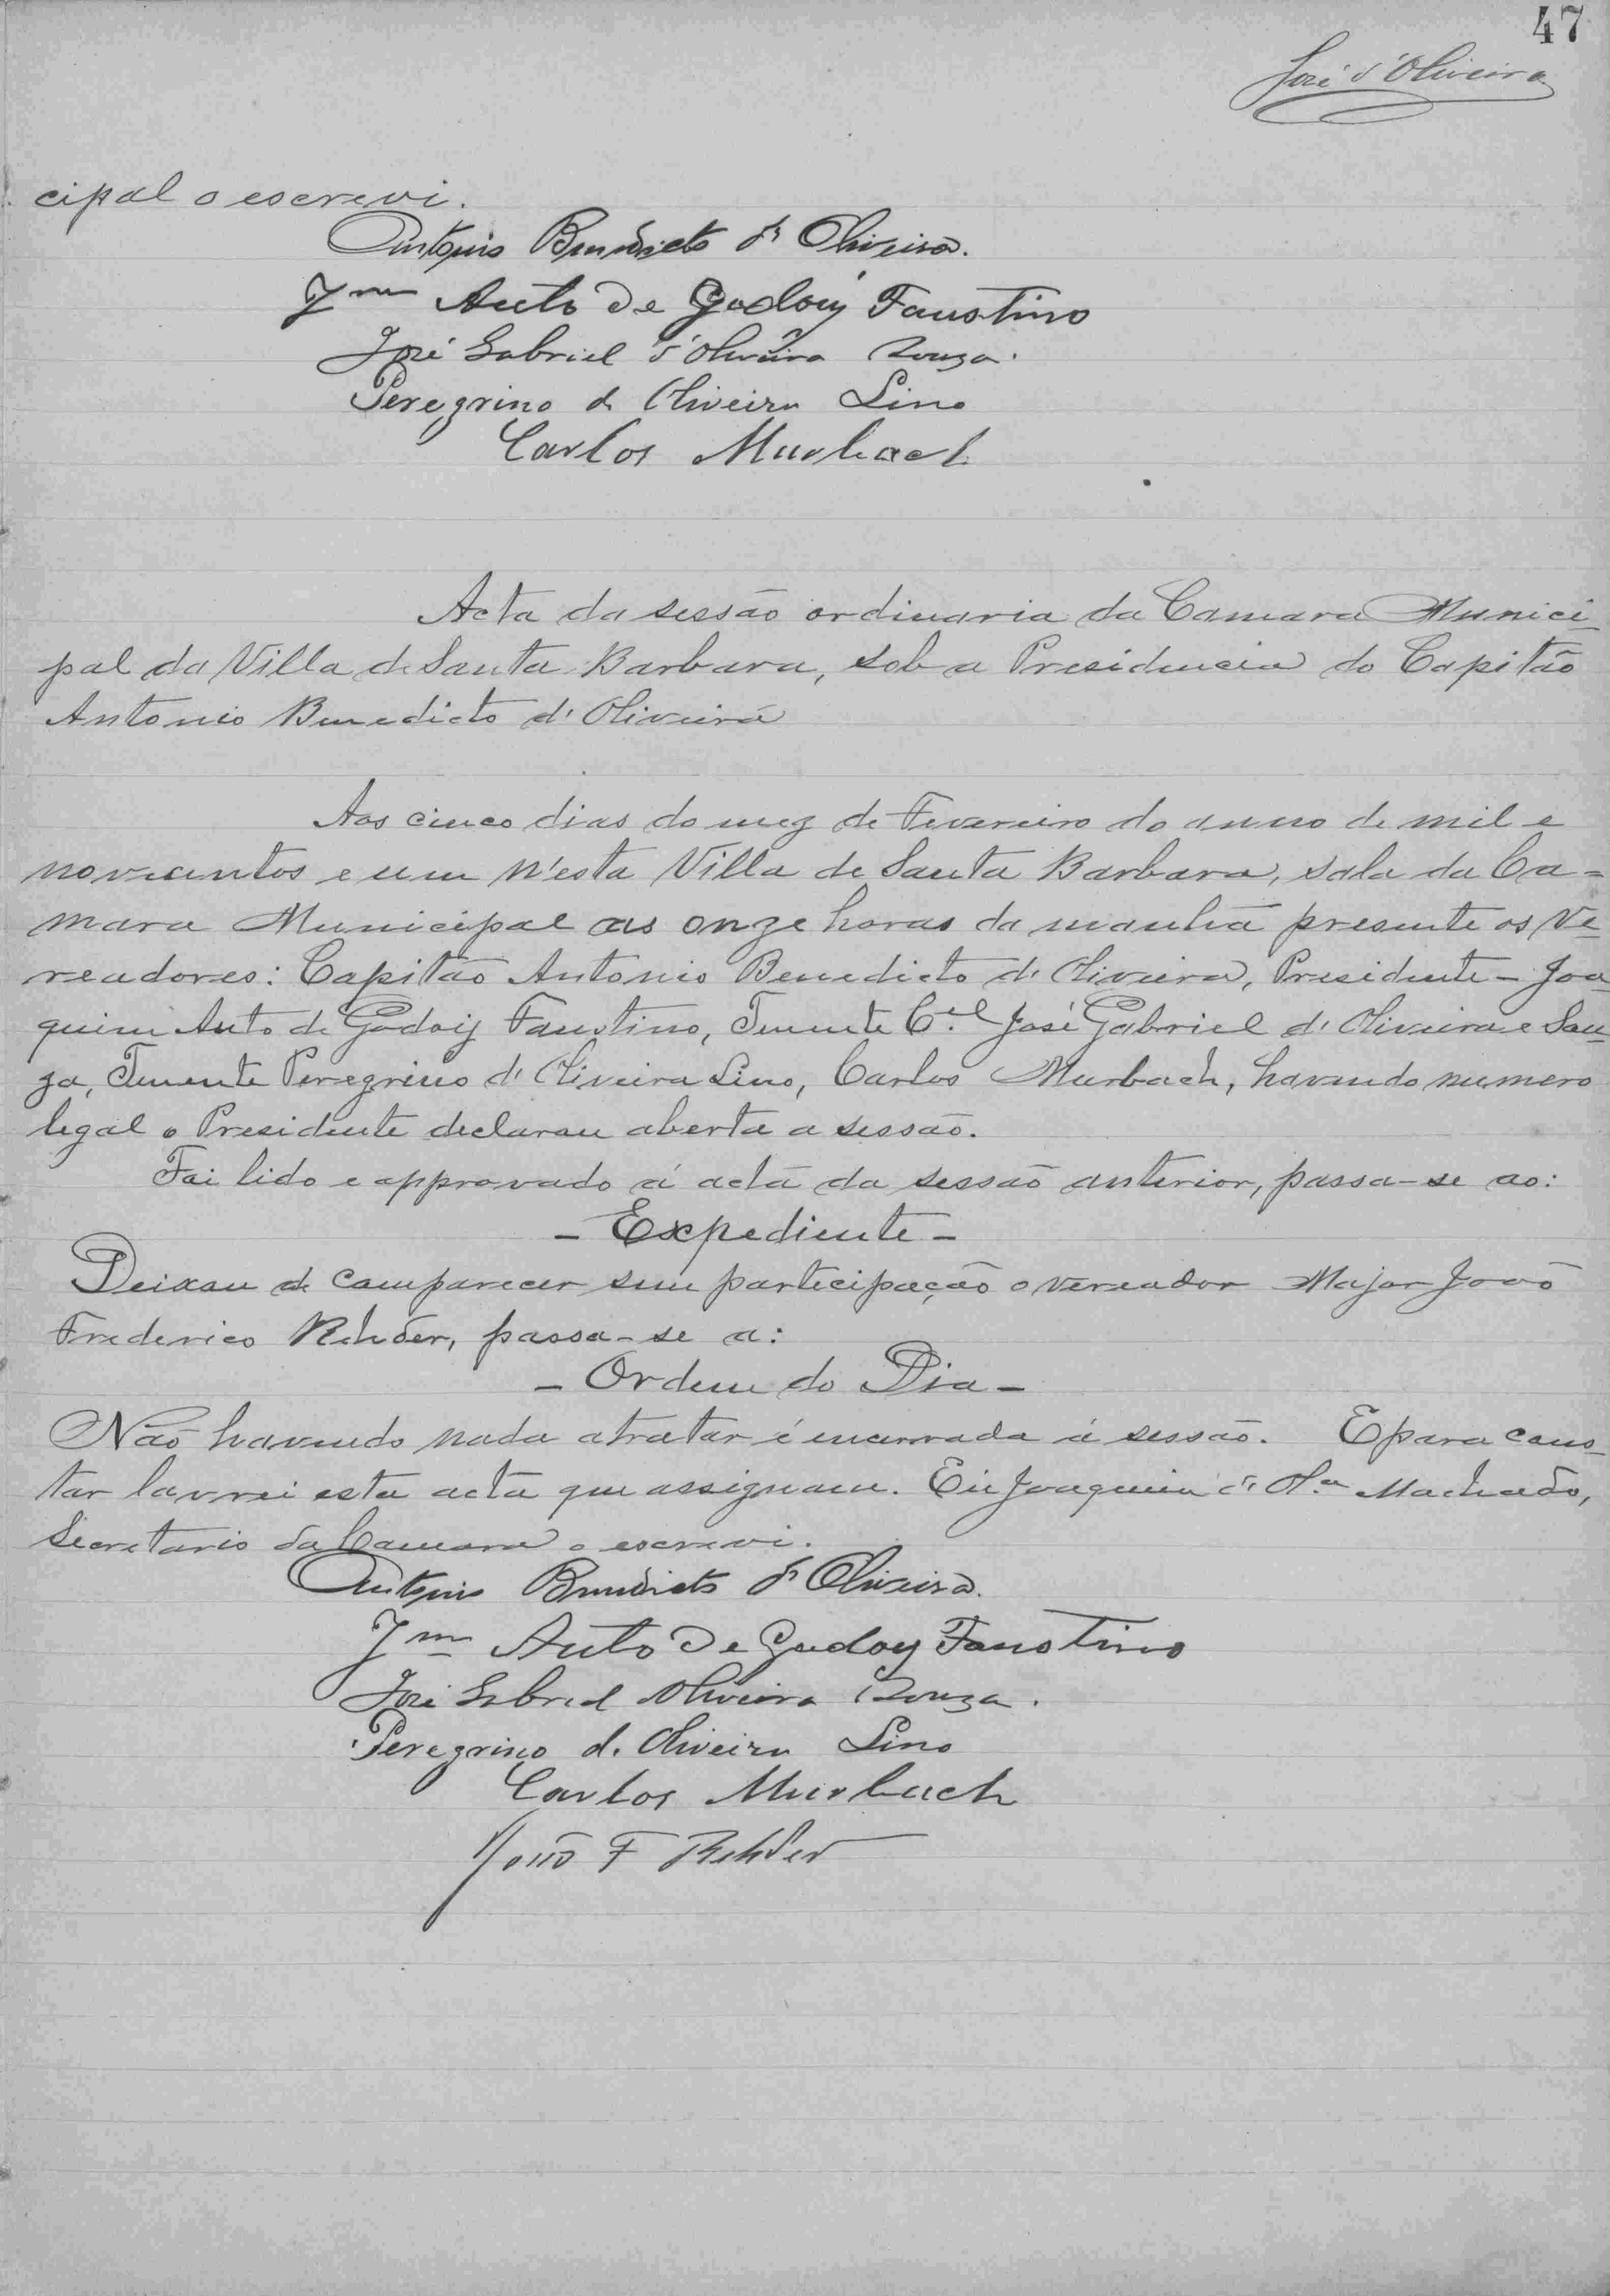 47
José d'Oliveira
cipal o escrevi.
Antonio Benedicto d' Oliveira.
Jm Auto de Godoy Faustino
José Gabriel d'Oliveira Souza.
Peregrino d. Oliveira Lino
Carlos Murbach
Acta da sessão ordinaria da Camara Munici-
pal da Villa de Santa Barbara, sob a Presidencia do Capitão
Antonio Benedicto d'Oliveira
Aos cinco dias do mez de Fevereiro do anno de mil e
novecentos e um n'esta Villa de Santa Barbara, sala da Ca=
mara Municipal as onze horas da manhã presente os Ve-
readores: Capitão Antonio Benedicto d'Oliveira, Presidente - Joa-
quim Auto de Godoy Faustino, Tenente C.el José Gabriel d'Oliveira e Sou-
za, Tenente Peregrino d'Oliveira Lino, Carlos Murbach, havendo numero
legal o Presidente declarou aberta a sessão.
Foi lido e approvado á acta da sessão anterior, passa-se ao:
- Expediente -
Deixou de comparecer sem participação o vereador Major João
Frederico Rehder, passa-se a:
- Ordem do Dia -
Não havendo nada atratar é encerrada á sessão. E para cons-
tar lavrei esta acta que assignam. Eu Joaquim d' Ol.a Machado,
Secretario da Camara o escrevi.
Antonio Benedicto d' Oliveira.
Jm Auto de Godoy Faustino
José Gabriel d'Oliveira Souza.
Peregrino d. Oliveira Lino
Carlos Murbach
João F Rehder